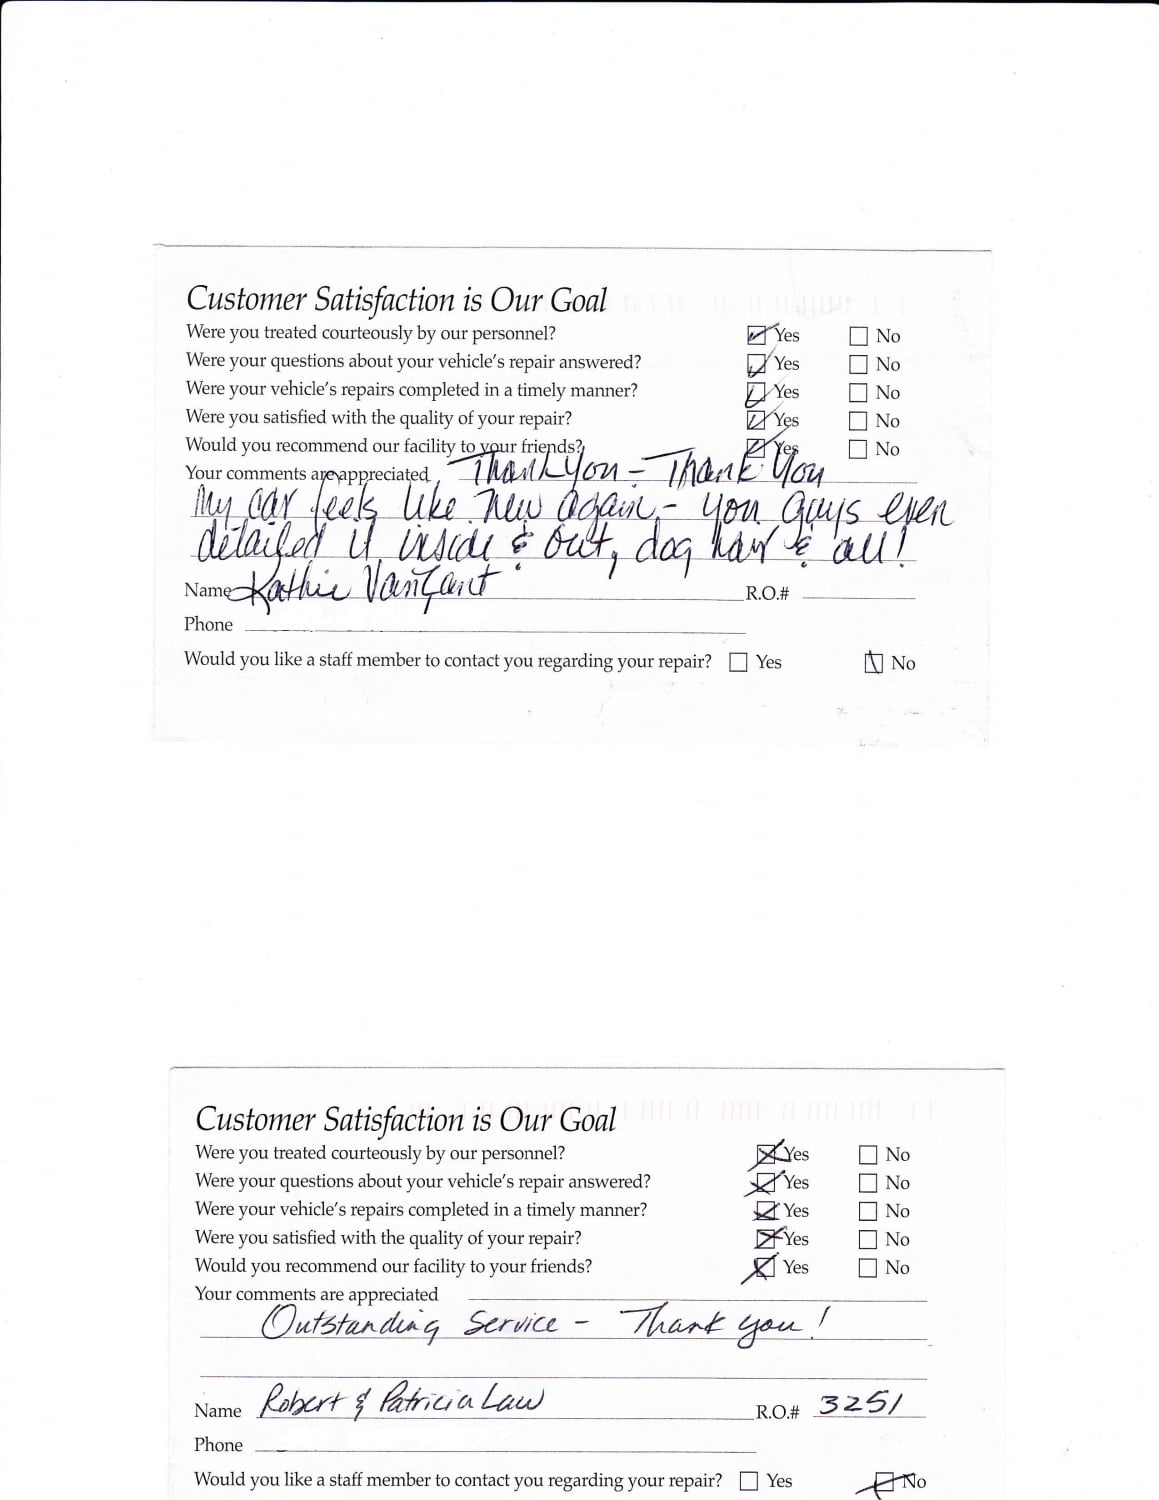 Customer Satisfaction is Our Goal
Were you treated courteously by our personnel? Yes No
Were your questions about your vehicle's repair answered? Yes No
Were your vehicle's repairs completed in a timely manner? Yes No
Were you satisfied with the quality of your repair? Yes No
Would you recommend our facility to your friends? Yes No
Your comments are appreciated Thank you - Thank you
My car feels like new again - you guys even
detailed it inside & out, dog hair & all!
Name Kathie VanZant R.O.#
Phone
Would you like a staff member to contact you regarding your repair? Yes No
Customer Satisfaction is Our Goal
Were you treated courteously by our personnel? Yes No
Were your questions about your vehicle's repair answered? Yes No
Were your vehicle's repairs completed in a timely manner? Yes No
Were you satisfied with the quality of your repair? Yes No
Would you recommend our facility to your friends? Yes No
Your comments are appreciated
Outstanding Service - Thank you!
Name Robert & Patricia Law R.O.# 3251
Phone
Would you like a staff member to contact you regarding your repair? Yes No